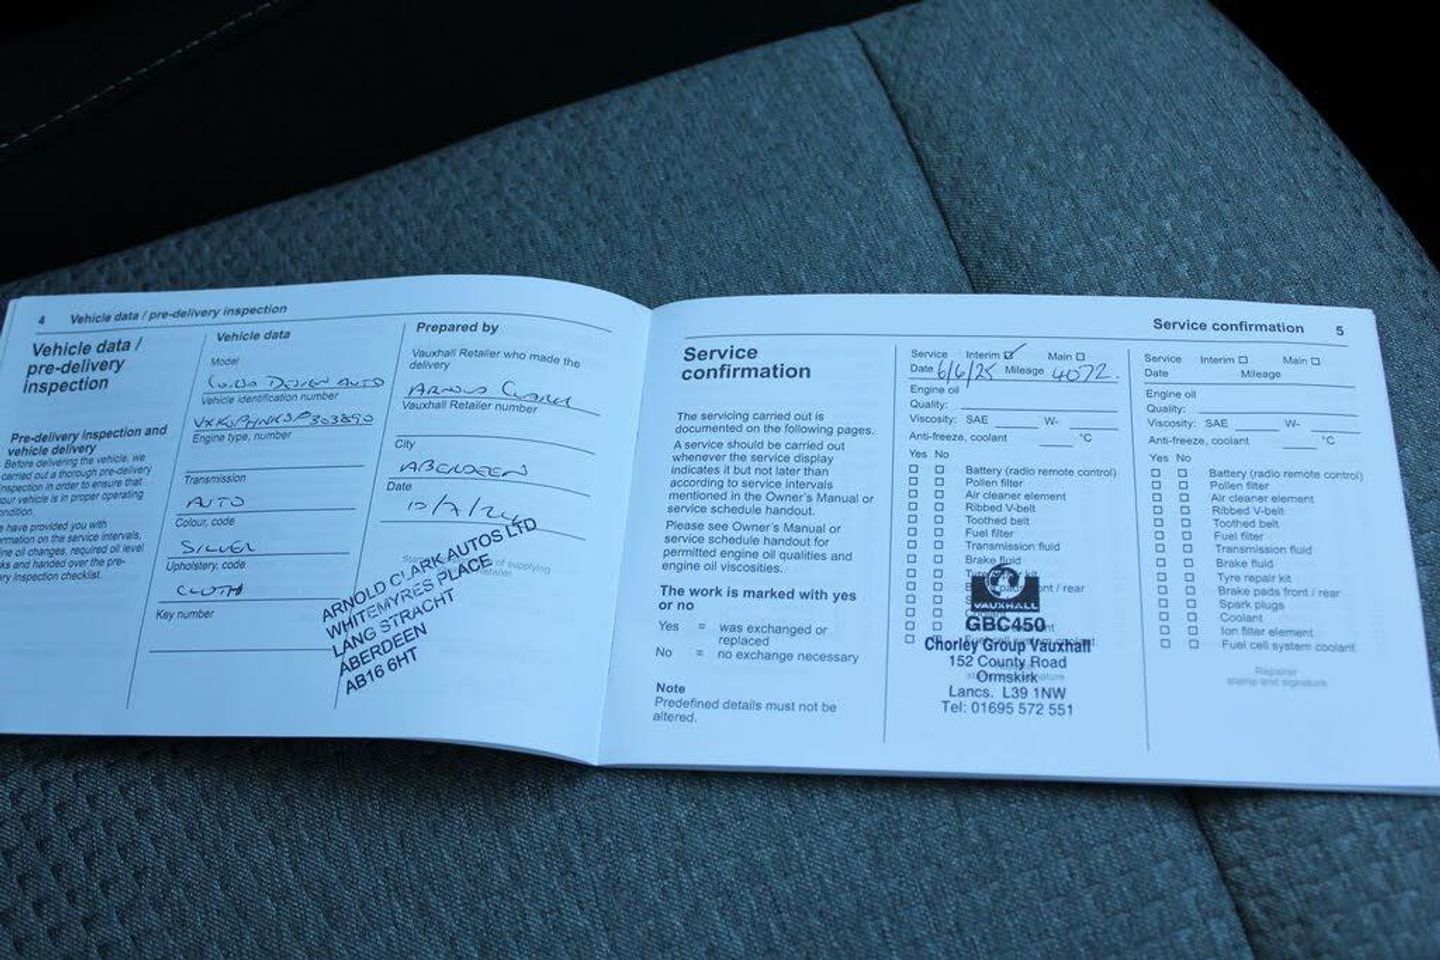 4 Vehicle data / pre-delivery inspection
Vehicle data /
pre-delivery
inspection
Pre-delivery inspection and
vehicle delivery
Before delivering the vehicle, we
carried out a thorough pre-delivery
inspection in order to ensure that
your vehicle is in proper operating
condition.
have provided you with
information on the service intervals,
oil changes, required oil level
and handed over the pre-
inspection checklist.
Vehicle data
Model
DESIGN AUTO
Vehicle identification number
Engine type, number
Transmission
AUTO
Colour, code
SILVER
Upholstery, code
CLOTH
Key number
Prepared by
Vauxhall Retailer who made the
delivery
ARNOLD CLARK
Vauxhall Retailer number
City
ABERDEEN
Date
10/7/24
of supplying
retailer
ARNOLD CLARK AUTOS LTD
WHITEMYRES PLACE
LANG STRACHT
ABERDEEN
AB16 6HT
Service confirmation 5
Service
confirmation
The servicing carried out is
documented on the following pages.
A service should be carried out
whenever the service display
indicates it but not later than
according to service intervals
mentioned in the Owner's Manual or
service schedule handout.
Please see Owner's Manual or
service schedule handout for
permitted engine oil qualities and
engine oil viscosities.
The work is marked with yes
or no
Yes = was exchanged or
replaced
No = no exchange necessary
Note
Predefined details must not be
altered.
Service Interim Main
Date 6/6/25 Mileage 4072
Engine oil
Quality:
Viscosity: SAE W-
Anti-freeze, coolant °C
Yes No
Battery (radio remote control)
Pollen filter
Air cleaner element
Ribbed V-belt
Toothed belt
Fuel filter
Transmission fluid
Brake fluid
kit
front / rear
Fuel cell system coolant
VAUXHALL
GBC450
Chorley Group Vauxhall
152 County Road
Ormskirk
Lancs. L39 1NW
Tel: 01695 572 551
Service Interim Main
Date Mileage
Engine oil
Quality:
Viscosity: SAE W-
Anti-freeze, coolant °C
Yes No
Battery (radio remote control)
Pollen filter
Air cleaner element
Ribbed V-belt
Toothed belt
Fuel filter
Transmission fluid
Brake fluid
Tyre repair kit
Brake pads front / rear
Spark plugs
Coolant
Ion filter element
Fuel cell system coolant
Repairer
stamp and signature